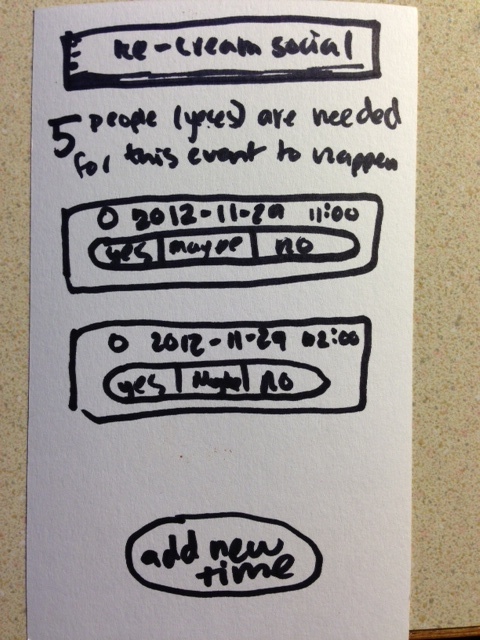 Ice-cream social
5 people (yeses) are needed
for this event to happen
0 2012-11-29 11:00
yes maybe no
0 2012-11-29 02:00
yes Maybe no
add new
time